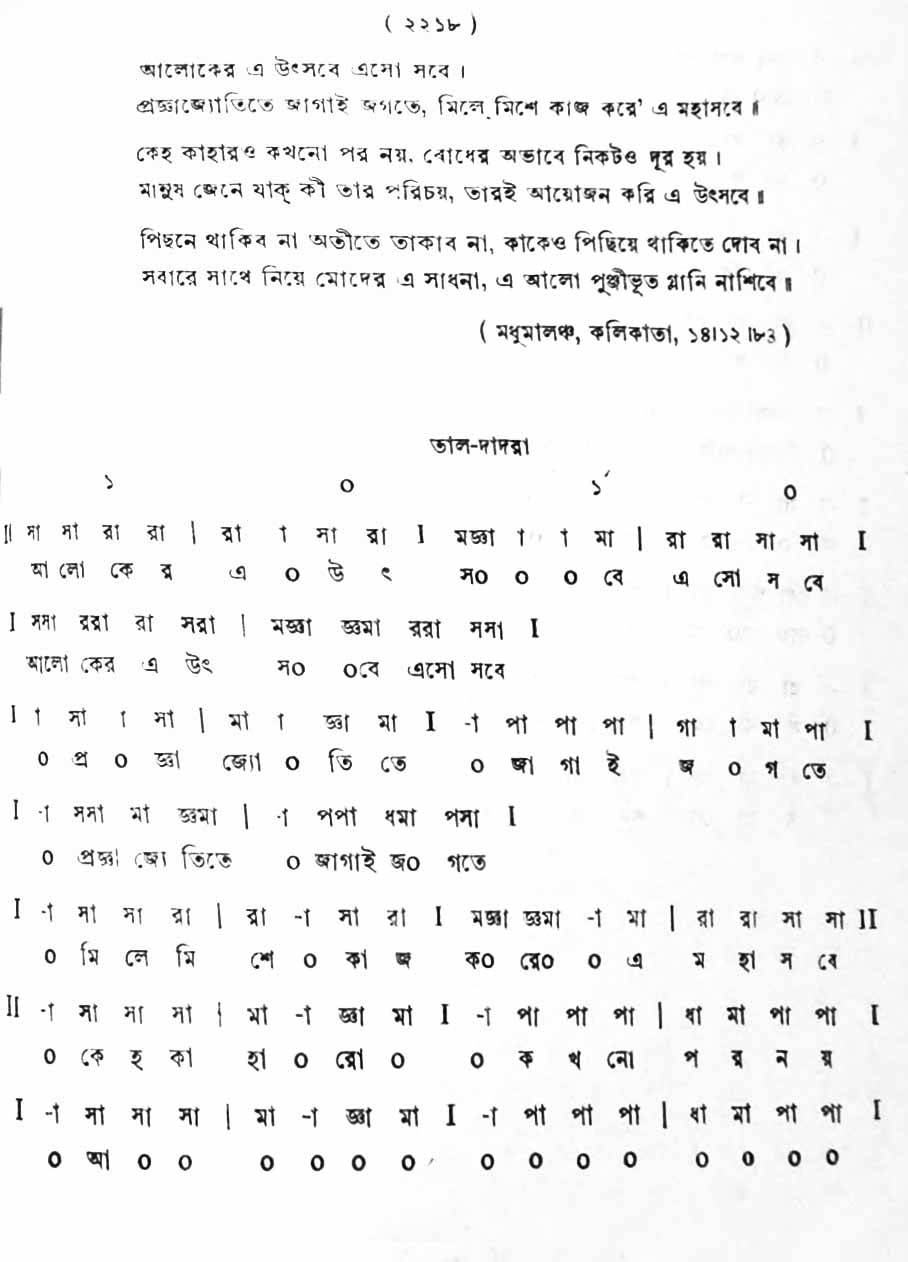 ( ২২১৮ )
আলোকের এ উৎসবে এসো সবে ।
প্রজ্ঞাজ্যোতিতে জাগাই জগতে, মিলে মিশে কাজ করে' এ মহাসবে ॥
কেহ কাহারও কখনো পর নয়, বোধের অভাবে নিকটও দূর হয় ।
মানুষ জেনে যাক্ কী তার পরিচয়, তারই আয়োজন করি এ উৎসবে ॥
পিছনে থাকিব না অতীতে তাকাব না, কাকেও পিছিয়ে থাকিতে দোব না ।
সবারে সাথে নিয়ে মোদের এ সাধনা, এ আলো পুঞ্জীভূত গ্লানি নাশিবে ॥
( মধুমালঞ্চ, কলিকাতা, ১৪।১২।৮৩ )
তাল-দাদরা
১ ০ ১´ ০
II সা সা রা রা | রা া সা রা I মজ্ঞা া া মা | রা রা সা সা I
আ লো কে র এ ০ উ ৎ স০ ০ ০ বে এ সো স বে
I সসা ররা রা সরা | মজ্ঞা জ্ঞমা ররা সসা I
আলো কের এ উৎ স০ ০বে এসো সবে
I া সা া সা | মা া জ্ঞা মা I -া পা পা পা | গা া মা পা I
০ প্র ০ জ্ঞা জ্যো ০ তি তে ০ জা গা ই জ ০ গ তে
I -া সসা মা জ্ঞমা | -া পপা ধমা পসা I
০ প্রজ্ঞা জ্যো তিতে ০ জাগাই জ০ গতে
I -া সা সা রা | রা -া সা রা I মজ্ঞা জ্ঞমা -া মা | রা রা সা সা II
০ মি লে মি শে ০ কা জ ক০ রে০ ০ এ ম হা স বে
II -া সা সা সা | মা -া জ্ঞা মা I -া পা পা পা | ধা মা পা পা I
০ কে হ কা হা ০ রো ০ ০ ক খ নো প র ন য়
I -া সা সা সা | মা -া জ্ঞা মা I -া পা পা পা | ধা মা পা পা I
০ আ ০ ০ ০ ০ ০ ০ ০ ০ ০ ০ ০ ০ ০ ০